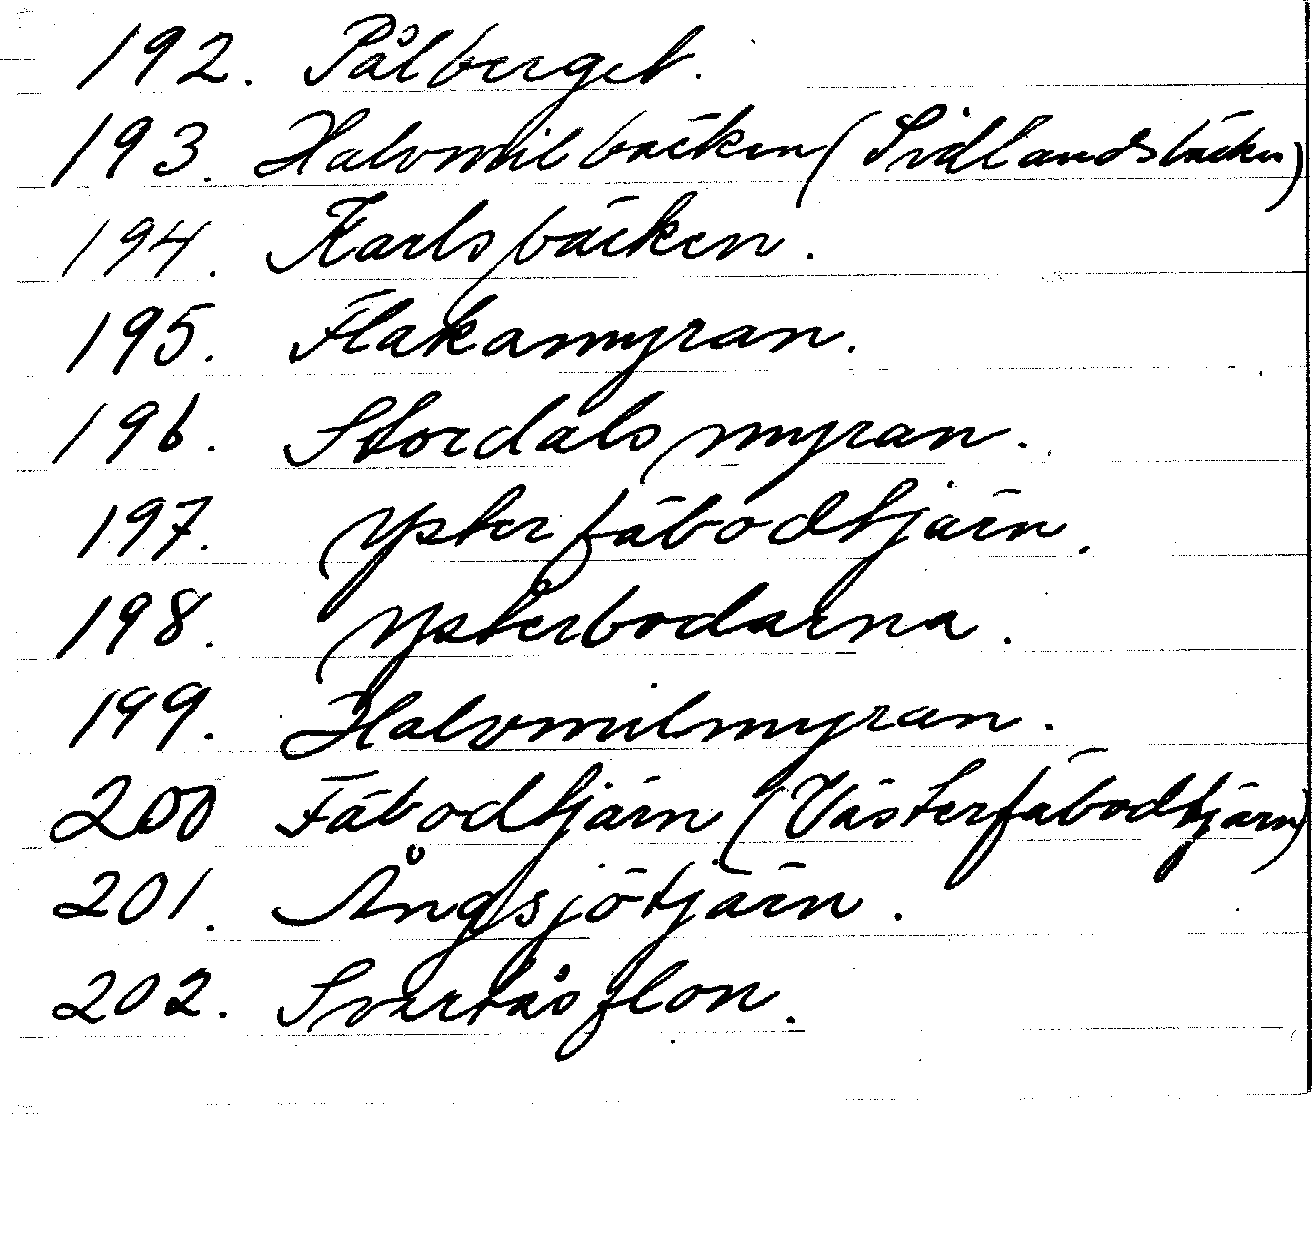 192. Pålberget.
193. Halvmilbäcken (Sidlandsbäcken)
194. Karlsbäcken.
195. Flakamyran.
196. Stordalsmyran.
197. Ysterfäbodtjärn.
198. Ysterbodarna.
199. Halvmilmyran.
200 Fäbodtjärn (Västerfäbodtjärn)
201. Ångsjötjärn.
202. Svartåsflon.